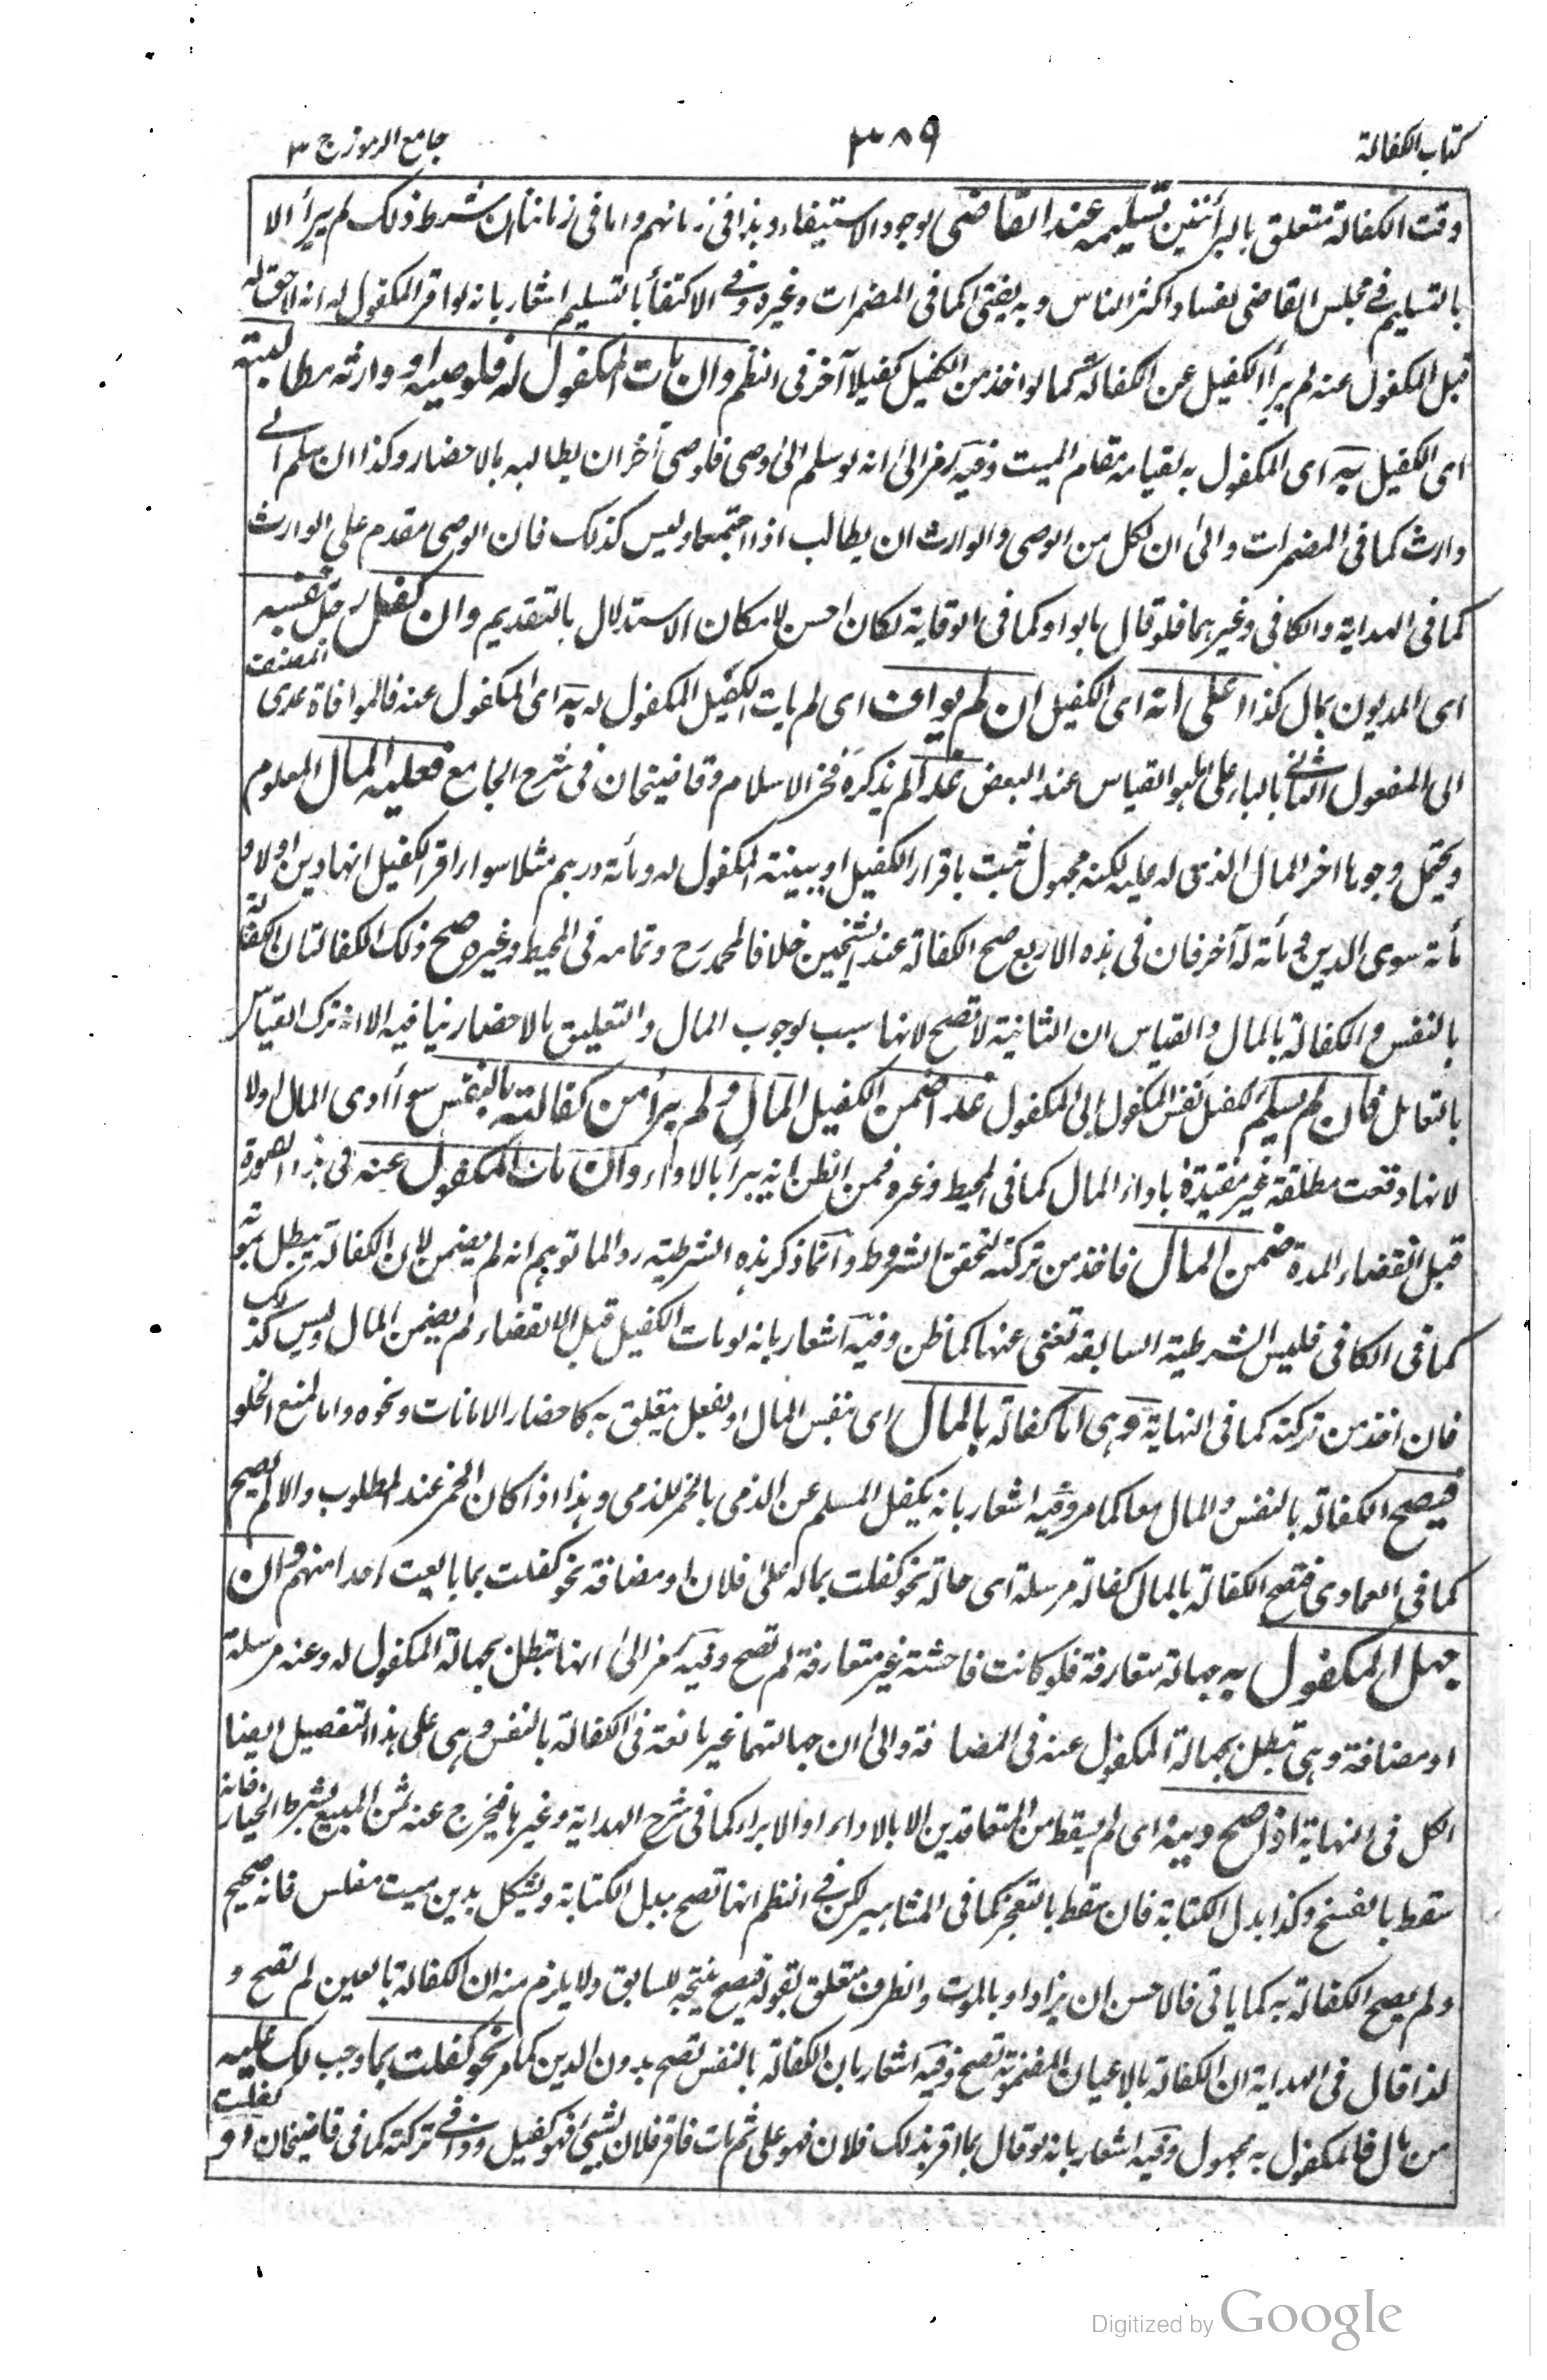 كتاب الكفالة ٣٨٩ جامع الرموز ج ٣
وقت الكفالة متعلق بالبرأتين تسليمه عند القاضى لوجود الاستيفاء وهذا فى زمانهم واما فى زماننا ان شرط ذلك لم يبرأ الا
بالتسليم فى مجلس القاضى لفساد اكثر الناس وبه يفتى كما فى المضمرات وغيره وفى الاكتفأ بالتسليم اشعار بانه لو اقر المكفول له انه لا حق له
قبل المكفول عنه لم يبرأ الكفيل عن الكفالة كما لو اخذ من الكفيل كفيلا آخر فى النظم وان مات المكفول له فلوصيه او وارثه مطالبته
اى الكفيل به اى المكفول به لقيامه مقام الميت وفيه رمز الى انه لو سلم الى وصى فلوصى آخر ان يطالبه بالاحضار وكذا ان سلم الى
وارث كما فى المضمرات والى ان لكل من الوصى والوارث ان يطالب اذا اجتمعا وليس كذلك فان الوصى مقدم على الوارث
كما فى الهداية والكافى وغيرهما فلو قال بالواو كما فى الوقاية لكان احسن لامكان الاستدلال بالتقديم وان كفل رجل بنفسه
اى المديون بمال كذا على انه اى الكفيل ان لم يواف اى لم يات الكفيل المكفول له به اى المكفول عنه فالموافاة عدى المصنف
الى المفعول الثانى بالباء على ما هو القياس عند البعض غدا لم يذكره فخر الاسلام وقاضيخان فى شرح الجامع فعليه المال المعلوم
ويحتمل وجوها اخر المال الذى له عليه لكنه مجهول ثبت باقرار الكفيل او ببينة المكفول له ومأة درهم مثلا سواء اقر الكفيل انها دين اولا و
مأة سوى الدين ومأة له آخر فان فى هذه الاربع صح الكفالة عند الشيخين خلافا لمحمد رح وتمامه فى المحيط وغيره صح ذلك الكفالتان الكفالة
بالنفس والكفالة بالمال والقياس ان الثانية لا تصح لانها سبب لوجوب المال والتعليق بالاحضار ينافيه الا انه ترك القياس
بالتعامل فان لم يسلم كفيل نفس المكفول الى المكفول غدا ضمن الكفيل المال ولم يبرأ من كفالته بالنفس سوأ ادى المال اولا
لانها وقعت مطلقة غير مقيدة باداء المال كما فى المحيط وغيره فمن الظن انه يبرأ بالاداء وان مات المكفول عنه فى هذا الصورة
قبل انقضاء المدة ضمن المال فاخذ من تركته لتحقق الشروط وانما ذكر هذه الشرطية ردا لما توهم انه لم يضمن لان الكفالة يبطل بموته
كما فى الكافى فليس الشرطية السابقة تغنى عنها كما ظن وفيه اشعار بانه لو مات الكفيل قبل الانقضاء لم يضمن المال وليس كذلك
فان اخذ من تركته كما فى النهاية وهى اما كفالة بالمال اى بنفس المال او بفعل يتعلق به كاحضار الامانات ونحوه واما لمنع الخلو
فيصح الكفالة بالنفس والمال معا كما مر وفيه اشعار بانه يكفل المسلم عن الذمى بالخمر للذمى وهذا اذا كان الخمر عند المطلوب والا لم يصح
كما فى العمادى فتصح الكفالة بالمال كفالة مرسلة اى حالة نحو كفلت بماله على فلان او مضافة نحو كفلت بما بايعت احدا منهم وان
جهل المكفول به جهالة متعارفة فلو كانت فاحشة غير متعارفة لم تصح وفيه رمز الى انها تبطل بجهالة المكفول له وعنه مرسلة
او مضافة وهى تبطل بجهالة المكفول عنه فى المضافة والى ان جهالتهما غير مانعة فى الكفالة بالنفس وهى على هذا التفصيل ايضا
الكل فى النهاية اذا صح دينه اى لم يسقط من المتعاقدين الا بالاداء او الابراء كما فى شرح الهداية وغيرها فيخرج عنه ثمن المبيع بشرط الخيار فانه
سقط بالفسخ وكذا بدل الكتابة فان سقط بالتعجز كما فى المشاهير لكن فى النظم انها تصح ببدل الكتابة ويشكل بدين ميت مفلس فانه صحيح
ولم يصح الكفالة به كما ياتى فالاحسن ان يزاد او بالموت والظرف متعلق بقوله فيصح نتيجة للسابق ولا يلزم منه ان الكفالة بالعين لم تصح و
لذا قال فى الهداية ان الكفالة بالاعيان المضمونة تصح وفيه اشعار بان الكفالة بالنفس تصح بدون الدين كما مر نحو كفلت بما وجب لك عليه
من مال فالمكفول به مجهول وفيه اشعار بانه لو قال بما اقر بذلك فلان فهو على ثم مات فاقر فلان بشئ فهو كفيل وذا فى تركته كما فى قاضيخان او كفلت
Digitized by Google